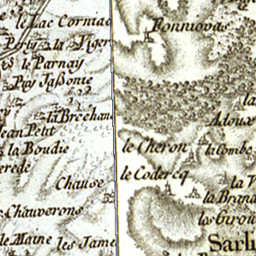 le Lac Corniac
la Tiger
le Parnay
Puy Jassonte
la Brechan
Jean Petit
la Boudie
Chause
Chauverons
le Maine
les Jame
Fonniovas
la
Adoux
le Cheron
la Combe
le Codercq
la V
la Brand
les Girou
Sarli